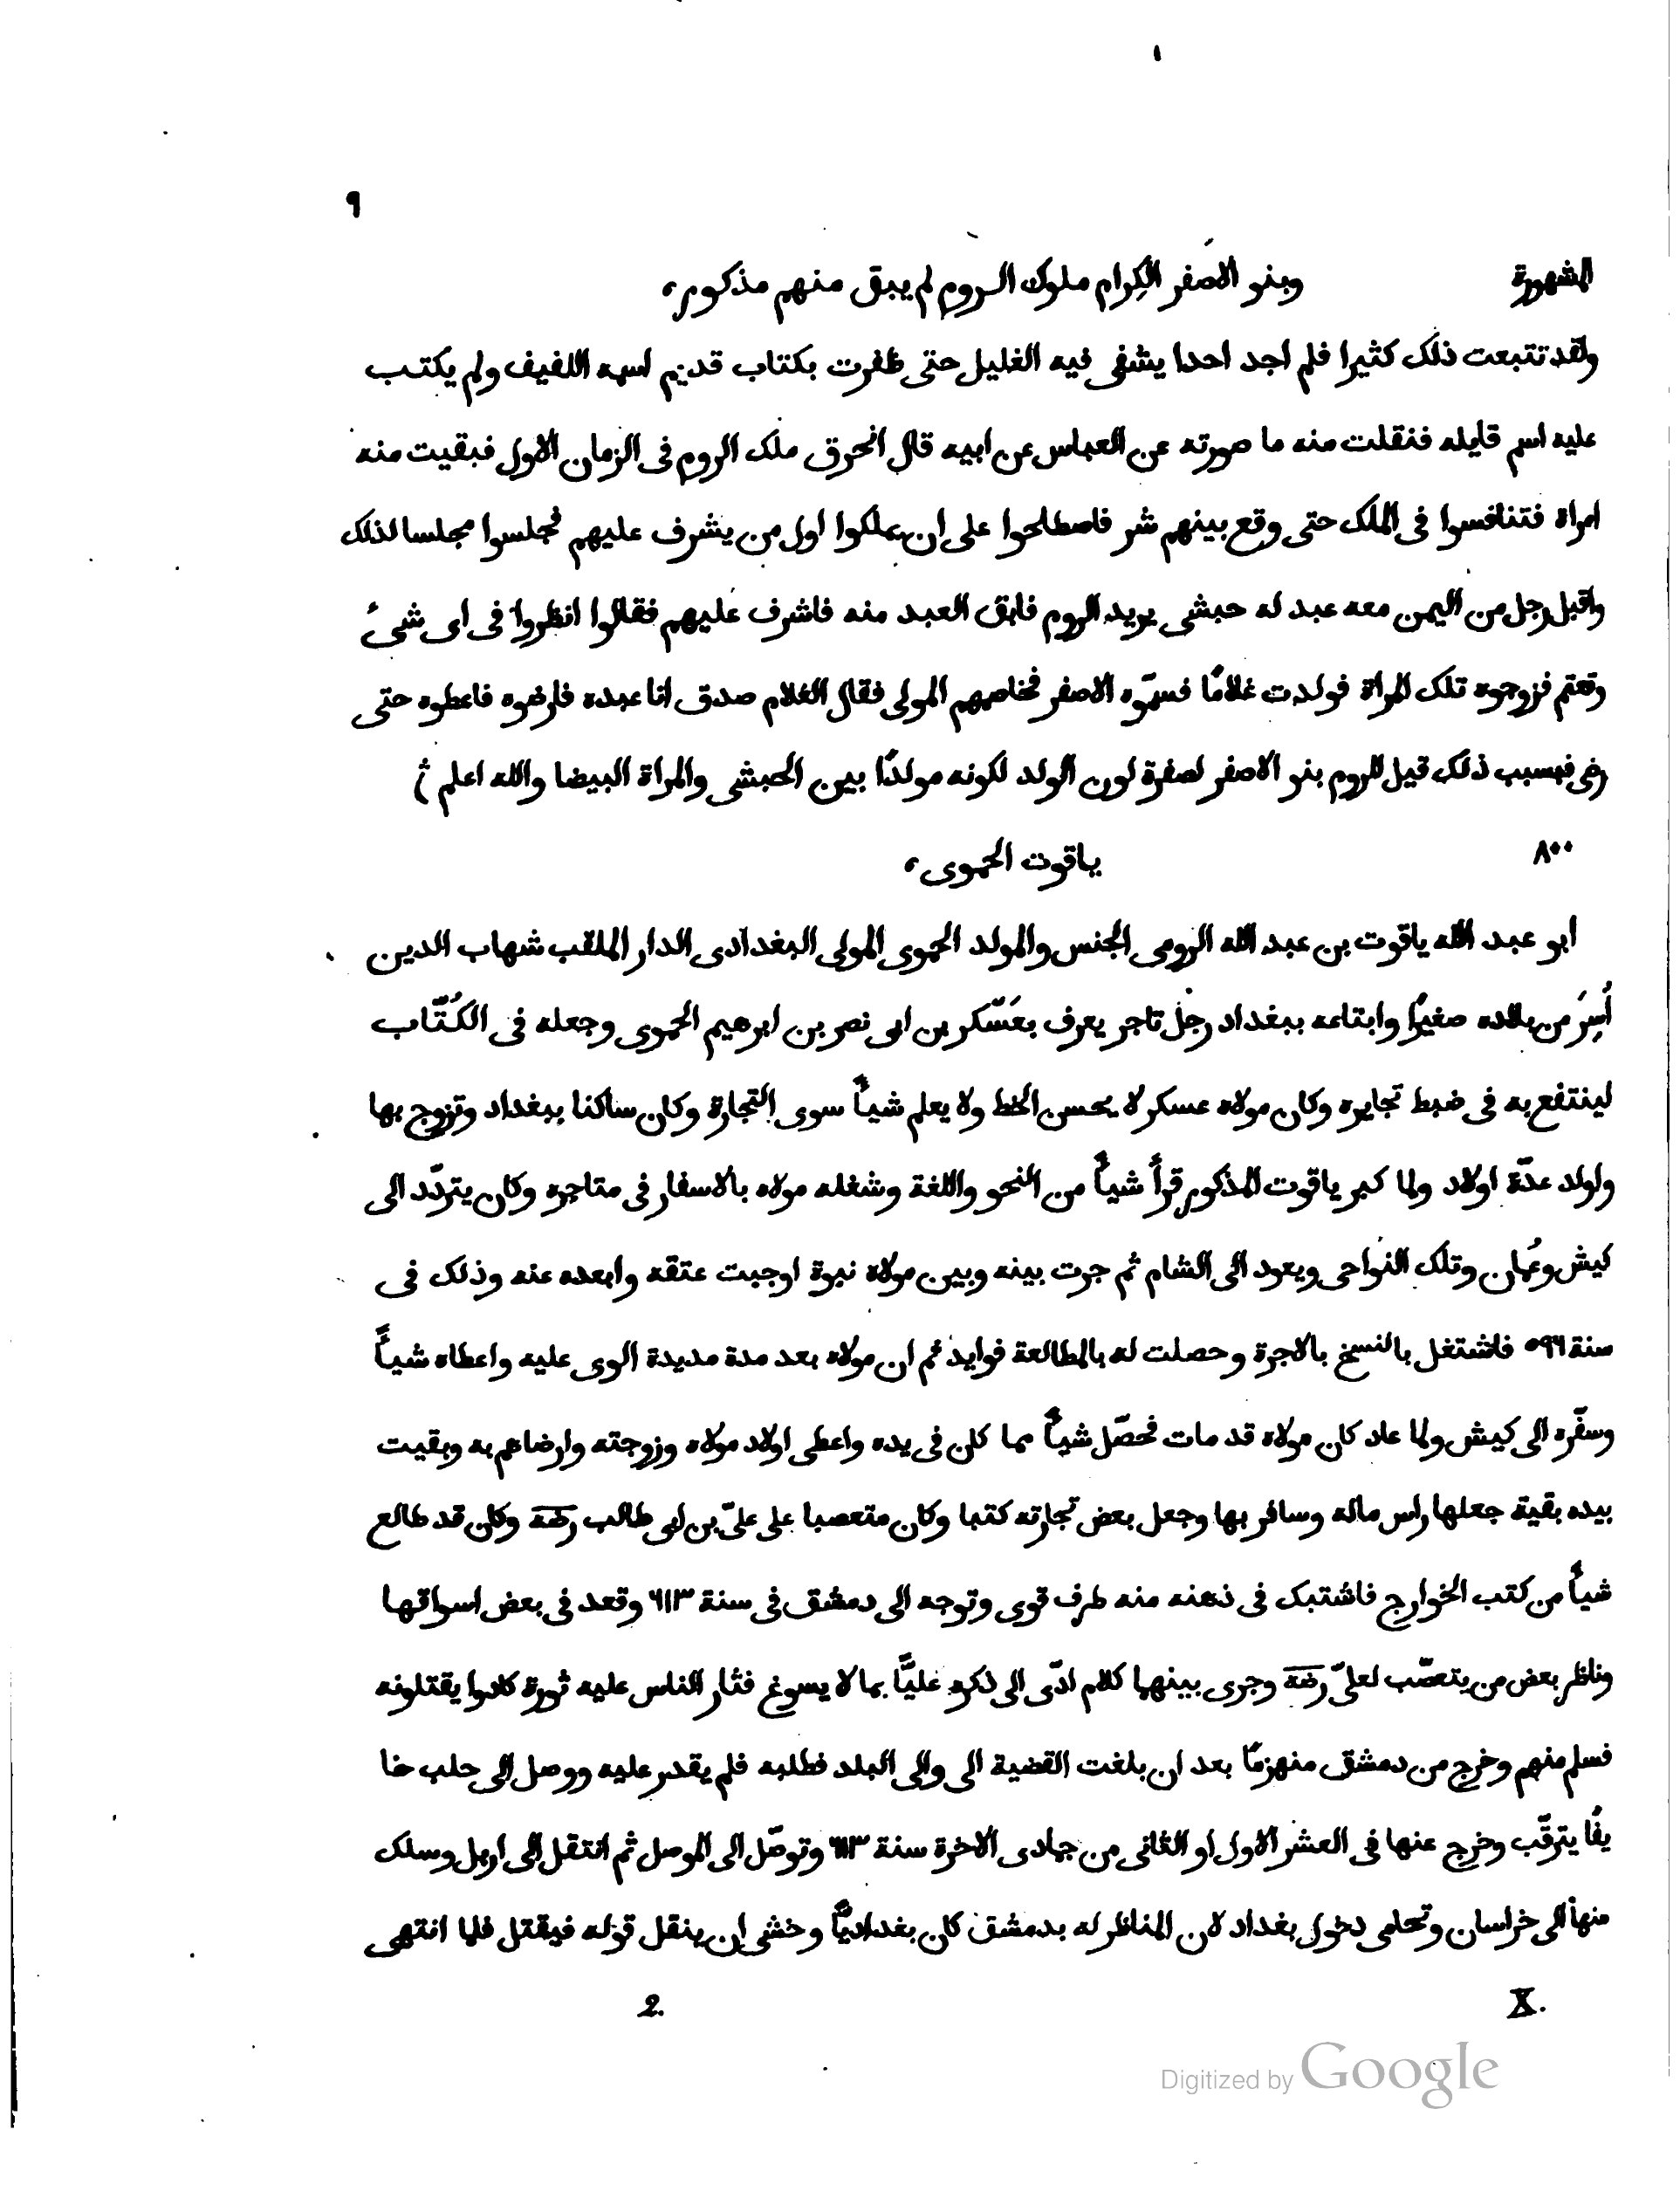 ٩
المشهورة وبنو الاصفر الكِرام ملوك الروم لم يبق منهم مذكور،
ولقد تتبعت ذلك كثيرا فلم اجد احدا يشفى فيه الغليل حتى ظفرت بكتاب قديم اسمه اللفيف ولم يكتب
عليه اسم قايله فنقلت منه ما صورته عن العباس عن ابيه قال انحرق ملك الروم فى الزمان الاول فبقيت منه
امراة فتنافسوا فى الملك حتى وقع بينهم شر فاصطلحوا على ان يملكوا اول من يشرف عليهم فجلسوا مجلسا لذلك
واقبل رجل من اليمن معه عبد له حبشى يريد الروم فابق العبد منه فاشرف عليهم فقالوا انظروا فى اى شىء
وقعتم فزوجوه تلك المراة فولدت غلامًا فسمّوه الاصفر فخاصمهم المولى فقال الغلام صدق انا عبده فارضوه فاعطوه حتى
رضى فبسبب ذلك قيل للروم بنو الاصفر لصفرة لون الولد لكونه مولدًا بين الحبشى والمراة البيضا والله اعلم
٨٠٠ ياقوت الحموى،
ابو عبد الله ياقوت بن عبد الله الرومى الجنس والمولد الحموى المولى البغدادى الدار الملقب شهاب الدين
أُسِرَ من بلاده صغيرًا وابتاعه ببغداد رجل تاجر يعرف بعَسْكر بن ابى نصر بن ابرهيم الحموى وجعله فى الكُتّاب
لينتفع به فى ضبط تجايره وكان مولاه عسكر لا يحسن الخط ولا يعلم شياً سوى التجارة وكان ساكنا ببغداد وتزوج بها
واولد عدّة اولاد ولما كبر ياقوت المذكور قرأ شياً من النحو واللغة وشغله مولاه بالاسفار فى متاجره وكان يتردّد الى
كيش وعُمان وتلك النواحى ويعود الى الشام ثم جرت بينه وبين مولاه نبوة اوجبت عتقه وابعده عنه وذلك فى
سنة ٥٩٦ فاشتغل بالنسخ بالاجرة وحصلت له بالمطالعة فوايد ثم ان مولاه بعد مدة مديدة الوى عليه واعطاه شياً
وسفّره الى كيش ولما عاد كان مولاه قد مات فحصّل شياً مما كان فى يده واعطى اولاد مولاه وزوجته وارضاهم به وبقيت
بيده بقية جعلها راس ماله وسافر بها وجعل بعض تجارته كتبا وكان متعصبا على علىّ بن ابى طالب رضه وكان قد طالع
شياً من كتب الخوارج فاشتبك فى ذهنه منه طرف قوى وتوجه الى دمشق فى سنة ٦١٣ وقعد فى بعض اسواقها
وناظر بعض من يتعصّب لعلىّ رضه وجرى بينهما كلام ادّى الى ذكره عليًّا بما لا يسوغ فثار الناس عليه ثورة كادوا يقتلونه
فسلم منهم وخرج من دمشق منهزمًا بعد ان بلغت القضية الى والى البلد فطلبه فلم يقدر عليه ووصل الى حلب خا
يفًا يترقّب وخرج عنها فى العشر الاول او الثانى من جمادى الاخرة سنة ٦١٣ وتوصّل الى الموصل ثم انتقل الى اربل وسلك
منها الى خراسان وتحامى دخول بغداد لان المناظر له بدمشق كان بغداديًّا وخشى ان ينقل قوله فيقتل فلما انتهى
X. 2.
Digitized by Google